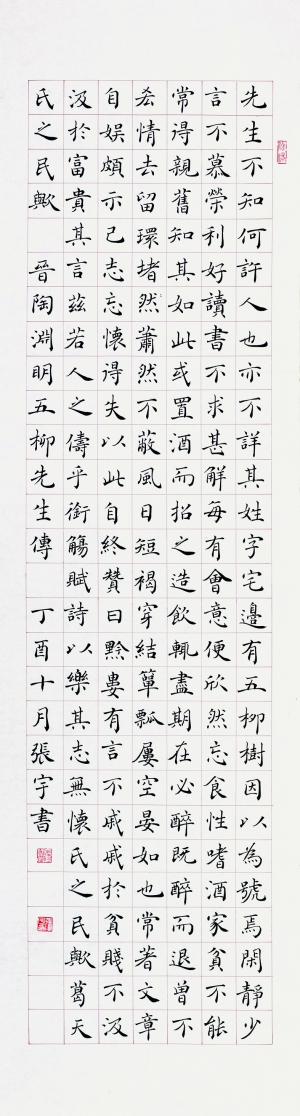 先生不知何許人也亦不詳其姓字宅邊有五柳樹因以為號焉閑靜少
言不慕榮利好讀書不求甚解每有會意便欣然忘食性嗜酒家貧不能
常得親舊知其如此或置酒而招之造飲輒盡期在必醉既醉而退曾不
吝情去留環堵然蕭然不蔽風日短褐穿結簞瓢屢空晏如也常著文章
自娛頗示己志忘懷得失以此自終贊曰黔婁有言不戚戚於貧賤不汲
汲於富貴其言茲若人之儔乎銜觴賦詩以樂其志無懷氏之民歟葛天
氏之民歟 晉陶淵明五柳先生傳 丁酉十月張宇書